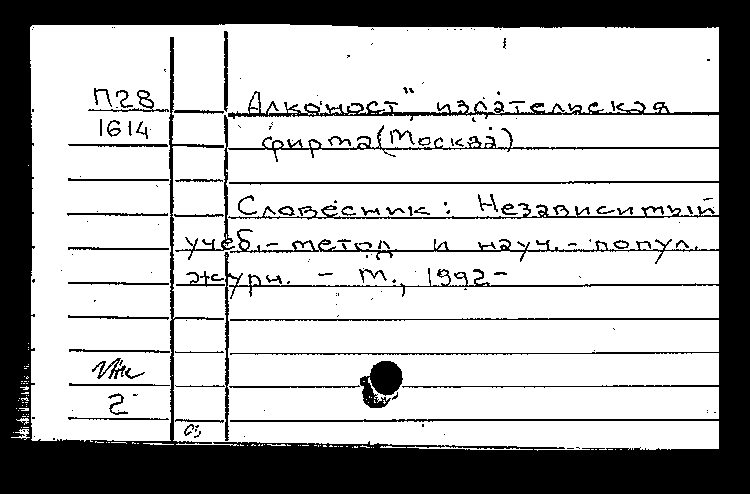 П28
1614
Алконост", издательская
фирма (Москва)
Словесник: Независимый
учеб.-метод. и науч.-попул.
журн. - М., 1992-
2